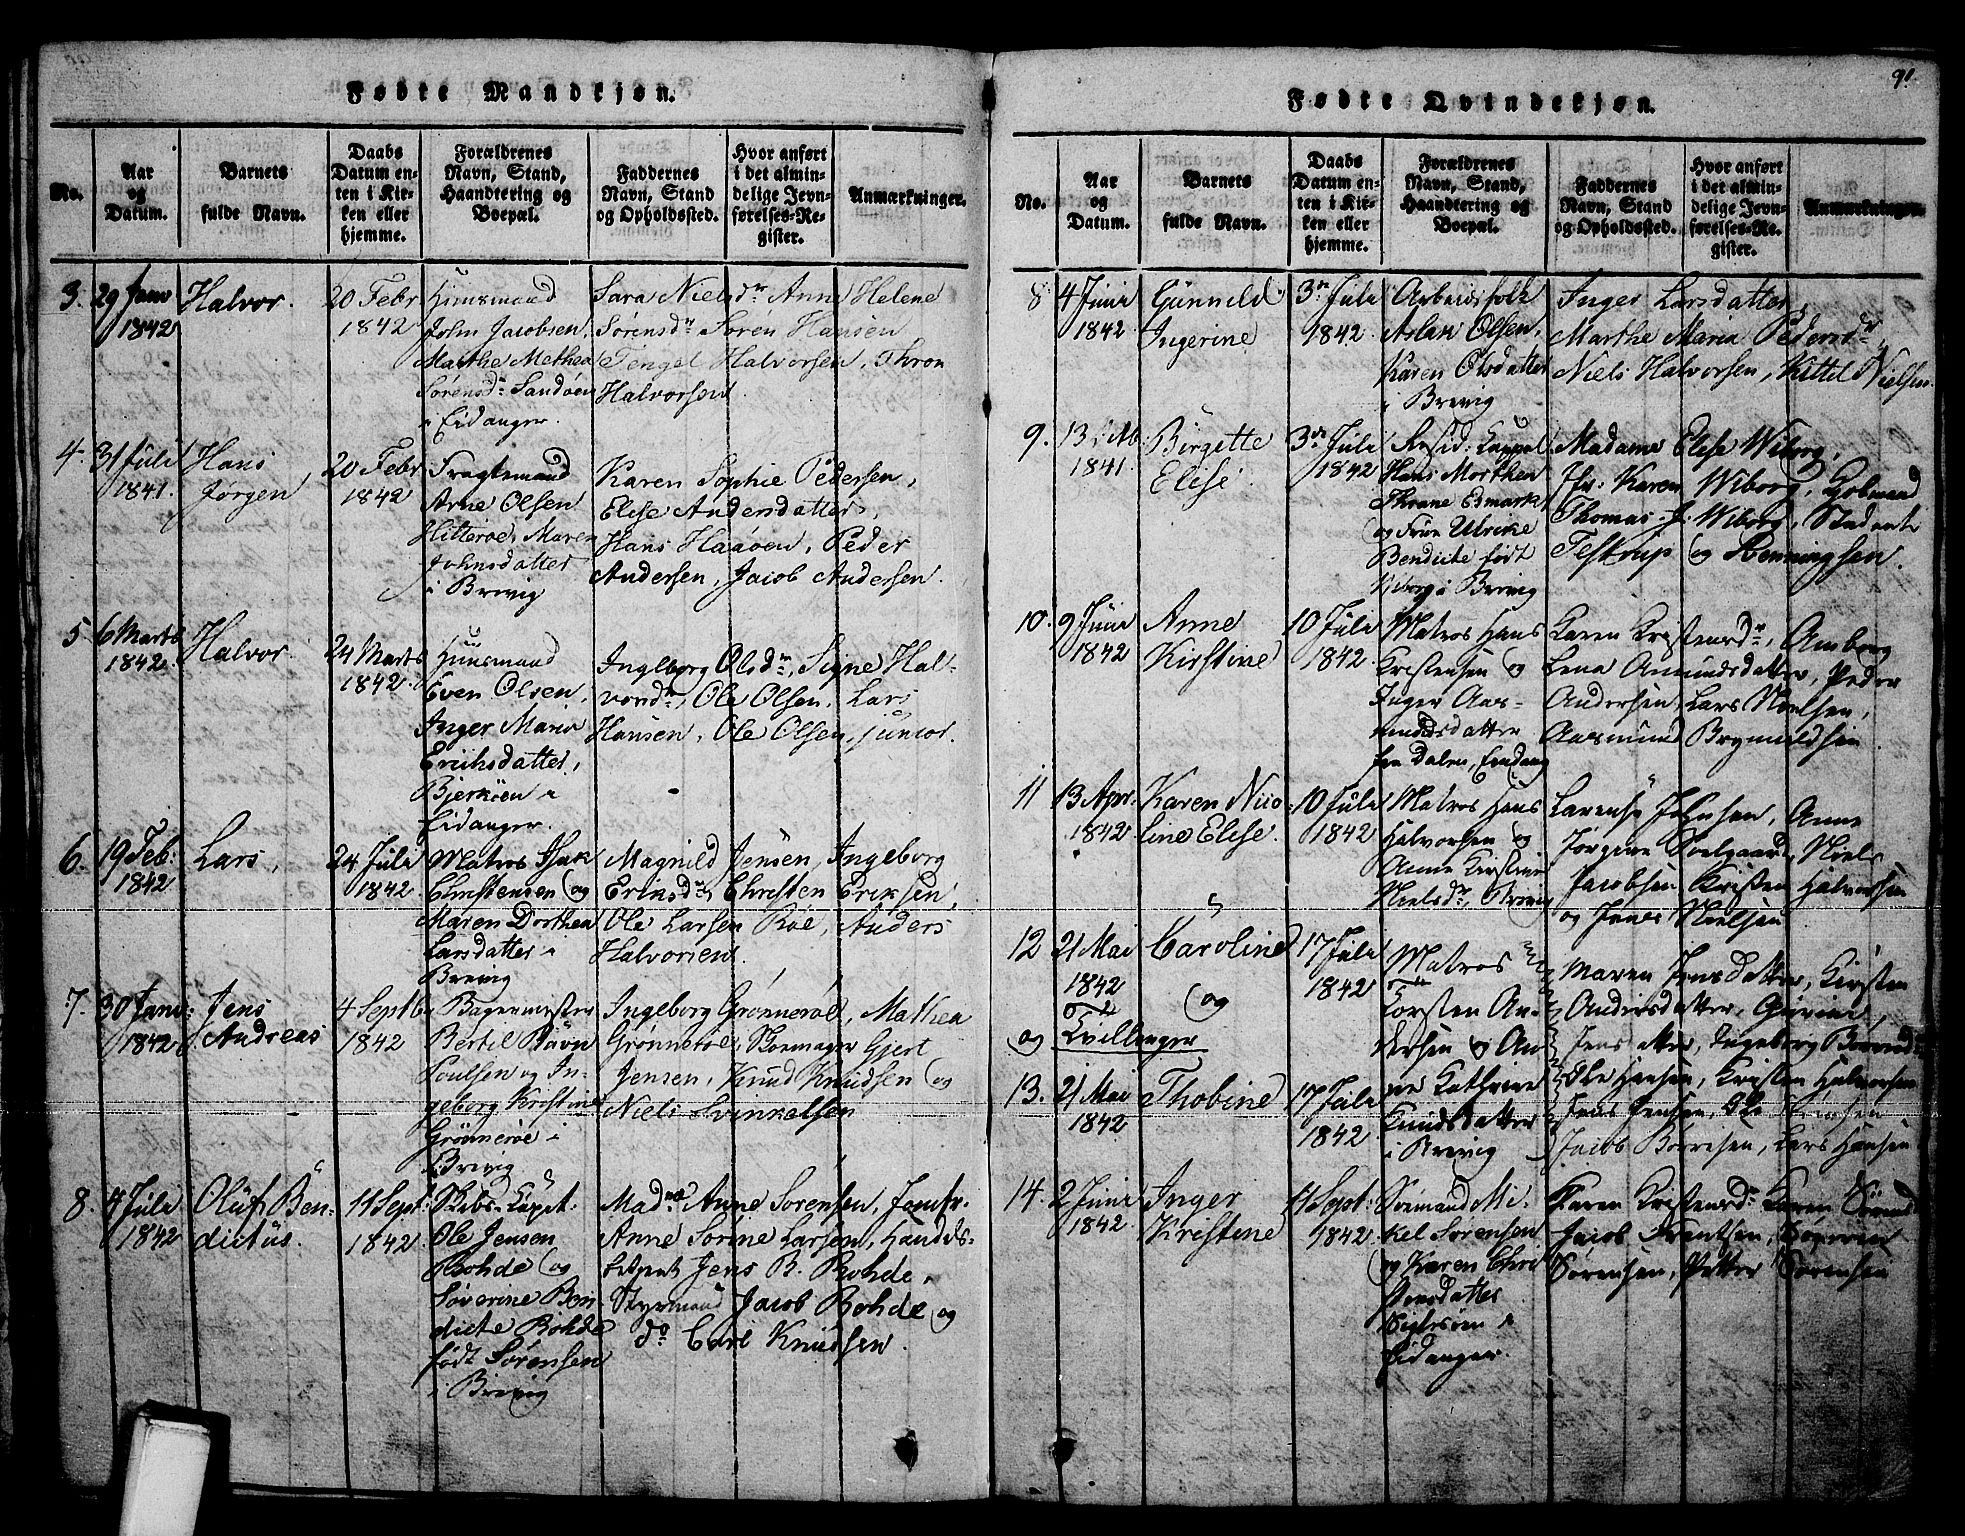 Fødte Mandkjøn.
No.
Aar
og
Datum.
Barnets
fulde Navn.
Daabs
Datum en-
ten i Kir-
ken eller
hjemme.
Forældrenes
Navn, Stand,
Haandtering og
Boepæl.
Faddernes
Navn, Stand
og Opholdssted.
Hvor anført
i det almin-
delige Jevn-
førelses-Re-
gister.
Anmærkninger.
3. 29 Janu
1842
Halvor.
20 Febr
1842
Huusmand
John Jacobsen,
Marthe Mathea
Sørensdr Sandøen
i Eidanger.
Sara Nielsdr Anne Helene
Sørensdr Søren Hansen
Tengel Halvorsen, Thron
Halvorsen
4. 31 Juli
1841.
Hans
Jørgen
20 Febr
1842
Fragtemand
Arne Olsen
Hitterøe, Maren
Johnsdatter
i Brevig
Karen Sophie Pedersen,
Elise Andersdatter,
Hans Haaøen, Peder
Andersen, Jacob Andersen.
5 6 Marts
1842.
Halvor.
24 Marts
1842.
Huusmand
Even Olsen,
Inger Maria
Eriksdatter,
Bjerkøen i
Eidanger.
Ingeborg Olsdr, Signe Hal-
vorsdr, Ole Olsen, Lars
Hansen, Ole Olsen, junior.
6. 19 Feb:
1842
Lars,
24 Juli
1842
Matros Isak
Christensen og
Maren Dorthea
Larsdatter i
Brevig
Magnild Jensen, Ingeborg
Eriksdr, Christen Eriksen,
Ole Larsen Roe, Anders
Halvorsen.
7. 30 Janu:
1842
Jens
Andreas
4 Septb
1842
Bagermester
Bertil Ravn
Poulsen og In-
geborg Kristine
Grønnerøe i
Brevig
Ingeborg Grønnerøe, Mathea
Grønnerøe, Skomager Gjert
Jensen, Knud Knudsen og
Niels Svinkelsen
8. 4 Juli
1842
Oluf Ben-
dictus.
11 Sept:
1842
Skibs-Capt:
Ole Jensen
Bohde og
Severine Ben
dicte Bohde
født Sørensen
i Brevig
Madme Anne Sørensen, Jomfr.
Anne Sorine Larsen, Handels-
betjent Jens B. Bohde,
Styrmand Jacob Bohde og
do Carl Knudsen.
91.
Fødte Qvindekjøn.
No.
Aar
og
Datum.
Barnets
fulde Navn.
Daabs
Datum en-
ten i Kir-
ken eller
hjemme.
Forældrenes
Navn, Stand,
Haandtering og
Boepæl.
Faddernes
Navn, Stand
og Opholdssted.
Hvor anført
i det almin-
delige Jevn-
førelses-Re-
gister.
Anmærkninger.
8 4 Juni
1842
Gunnild
Ingerine
3de Juli
1842
Arbeidsfolk
Aslak Olsen,
Karen Olsdatter
i Brevig
Inger Larsdatter,
Marthe Maria Pedersdr,
Niels Halvorsen, Kittel Nielsen.
9. 13
1841.
Birgette
Elise
3de Juli
1842
Resid: Cappel
Hans Morthen
Thrane Esmark
og Frue Ulrikke
Bendicte født
Wiborg i Brevig
Madame Elise Wiborg,
Jfr: Karen Wiborg, Kjøbmand
Thomas J. Wiborg, Studente
Testrup og Henningsen.
10. 9 Juni
1842
Anne
Kirstine
10 Juli
1842
Matros Hans
Kristensen og
Inger Aas-
mundsdatter
fra Dalen, Eidang
Karen Kristensdr, Amborg
Lena Amundsdatter, Peder
Andersen, Lars Nielsen,
Aasmund Brynuldsen
11 13 Apr.
1842
Karen Nico-
line Elise.
10 Juli
1842
Matros Hans
Halvorsen og
Anne Kirstine
Nielsdr, Brevig
Larense Johnsen, Anne
Jørgine Soelgaard, Niels
Jacobsen Kristen Halvorsen
og Jens Nielsen
12 21 Mai
1842
Caroline
og
17 Juli
1842
Matros
Torsten An-
dersen og An-
ne Kathrine
Knudsdatter
i Brevig
Maren Jensdatter, Kirsten
Andersdatter, Gurine
Jensdatter, Ingeborg
Ole Hansen, Kristen Halvorsen
Jens Jensen, Ole
Jacob Børresen, Lars Hansen
og Tvillinger
13. 21 Mai
1842
Thobine
17 Juli
1842
14. 2 Juni
1842
Inger
Kristine
11 Sept:
1842
Sømand Mi-
kel Sørensen
og Karen Chri
stensdatter
i
Eidanger.
Karen Kristensdr Karen Sørensd
Jacob Frantsen, Søren
Sørensen, Petter Sørensen